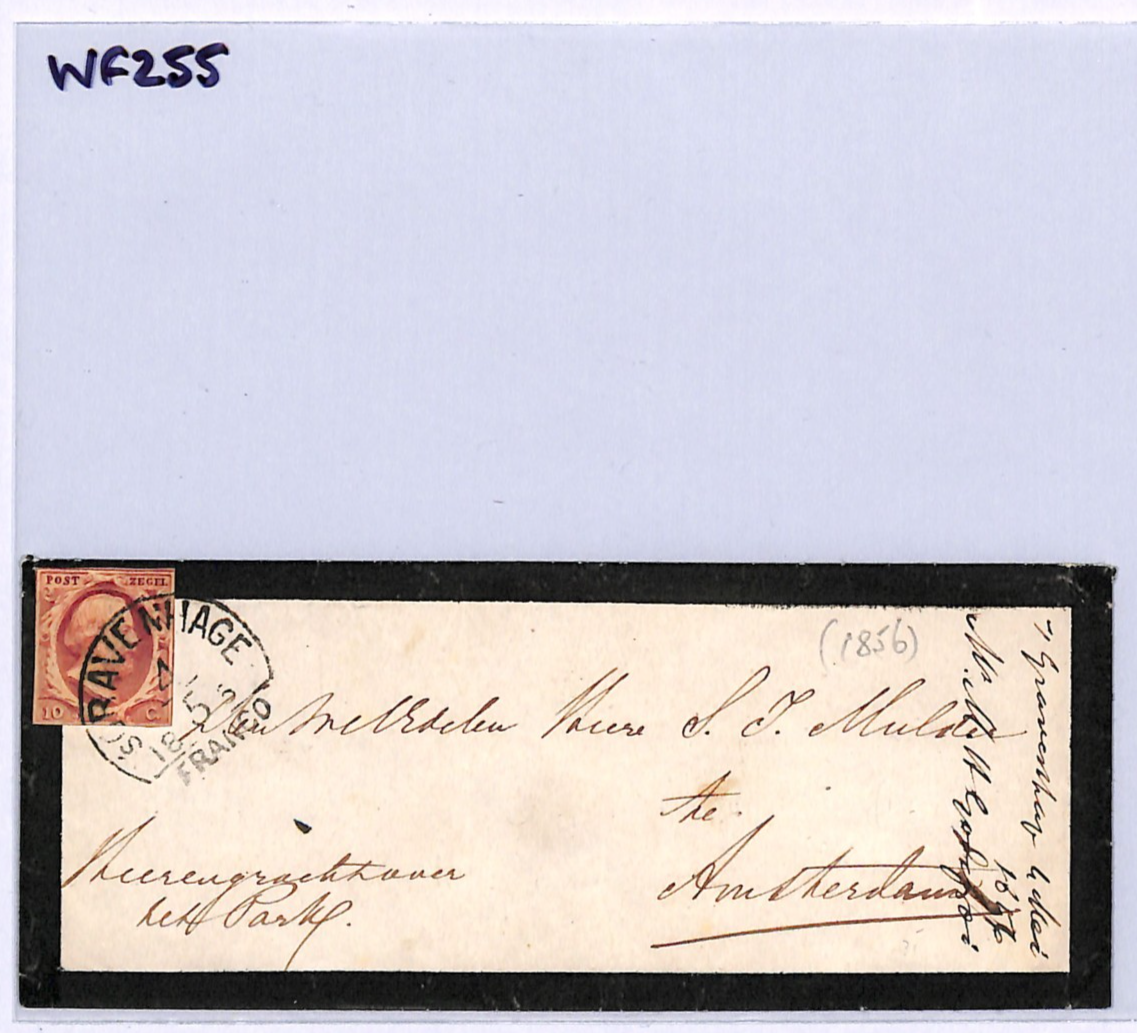 WF255
POST ZEGEL
10 C
S'GRAVENHAGE
18
FRANCO
(1856)
Heere S. T. Mulder
te
Amsterdam
Heerengracht over
het Park.
's Gravenhav 4 Mei